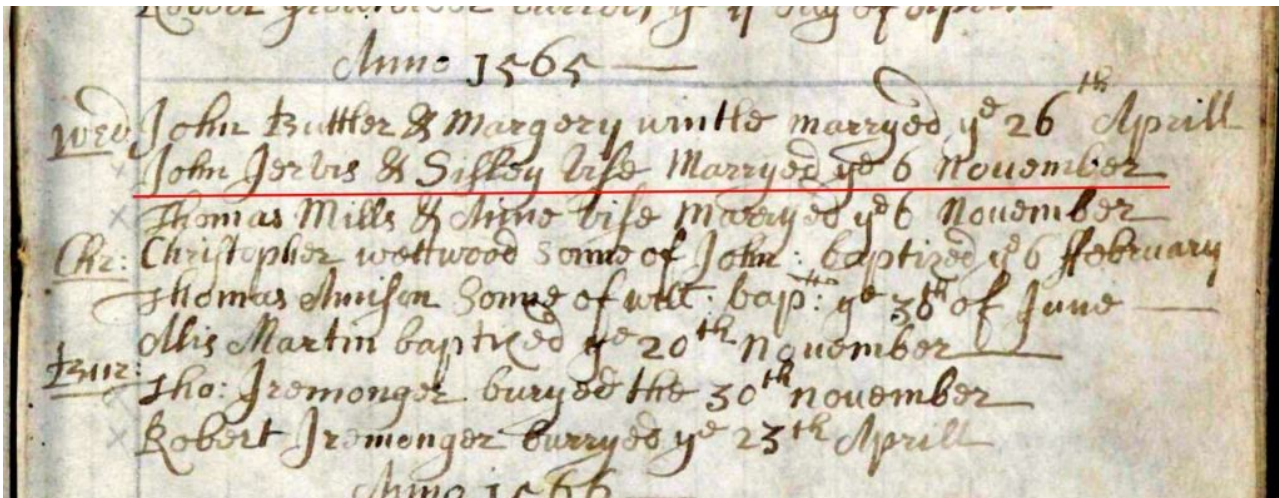 Anno 1565
Wed John Buttler & Margery wintle marryed ye 26th Aprill
John Jervis & Sissey bise Marryed ye 6 November
Thomas Mills & Anne bise Marryed ye 6 November
Chr: Christopher westwood sonne of John: baptized ye 6 ffebruary
Thomas Amison Sonne of will: bap: ye 30th of June
Alis Martin baptized ye 20th November
Bur: Tho: Iremonger buryed the 30th november
Robert Iremonger burryed ye 23th Aprill
Anno 1566